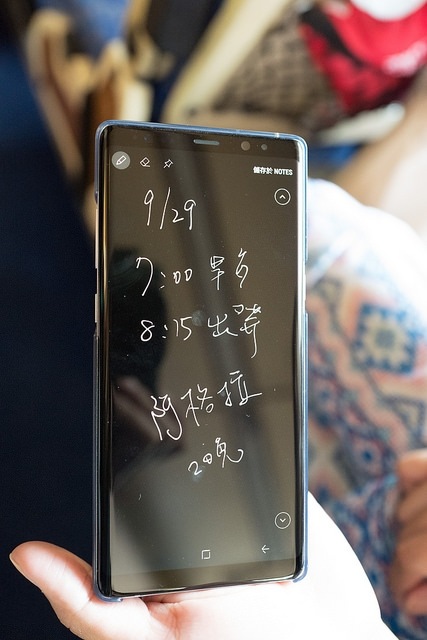 儲存於 NOTES
9/29
7:00 早歺
8:15 出發
阿格拉
2晚